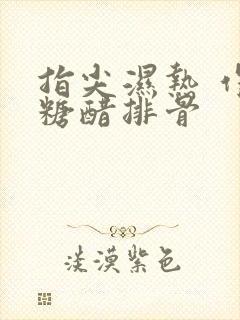 指尖濕熱
糖醋排骨
淡漠紫色